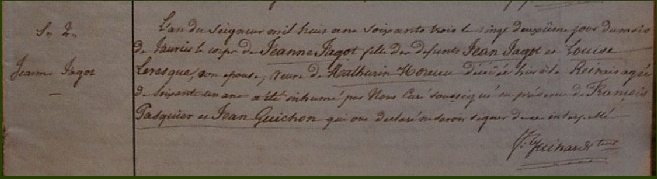 Sre 2.
Jeanne Jagot
L'an du Seigneur mil huit cent soixante trois le vingt deuxième jour du mois
de Janvier le corps de Jeanne Jagot fille de défunts Jean Jagot et Louise
Levesque, son épouse, veuve de Mathurin Moreau décédée hier à la agée
de soixante un ans a été inhumé par Nous Curé soussigné en présence de François
Pasquier et Jean Guichon qui ont déclaré ne savoir signer de ce interpellés